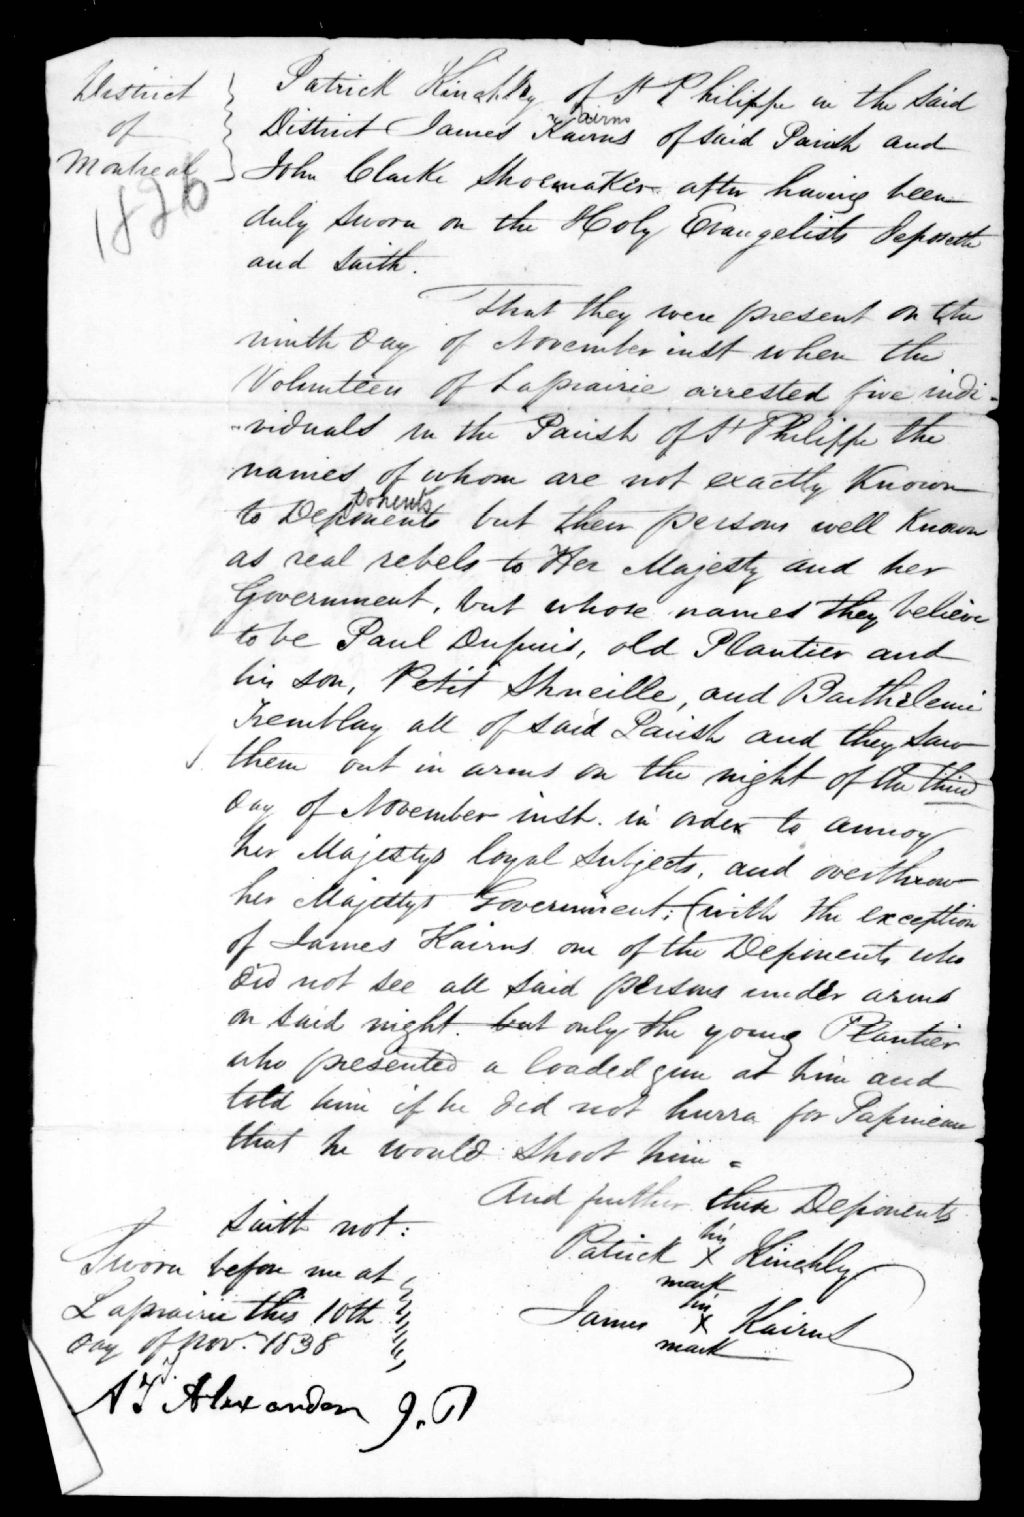 District
of
Montreal
1826
Patrick Hinchly of St Philippe in the said
Kairns
District James Kairns of said Parish and
John Clarke Shoemaker after having been
duly sworn on the Holy Evangelists deposeth
and saith.
That they were present on the
ninth day of November inst when the
Volunteers of Laprairie arrested five indi-
-viduals in the Parish of St Philippe the
names of whom are not exactly known
ponents
to Deponents but their persons well known
as real rebels to Her Majesty and her
Government, but whose names they believe
to be Paul Dupuis, old Plantier and
his son, Petit Shneille, and Barthelemi
Tremblay all of said Parish and they saw
them out in arms on the night of the third
day of November inst. in order to annoy
her Majestys loyal subjects, and overthrow
her Majestys Government; (with the exception
of James Kairns one of the Deponents who
did not see all said persons under arms
on said night. but only the young Plantier
who presented a loaded gun at him and
told him if he did not hurra for Papineau
that he would shoot him -
And further these Deponents
saith not:
Sworn before me at
Laprairie this 10th
day of Nov. 1838
his
Patrick X Hinchly
mark
his
James X Kairns
mark
Alexander J.P